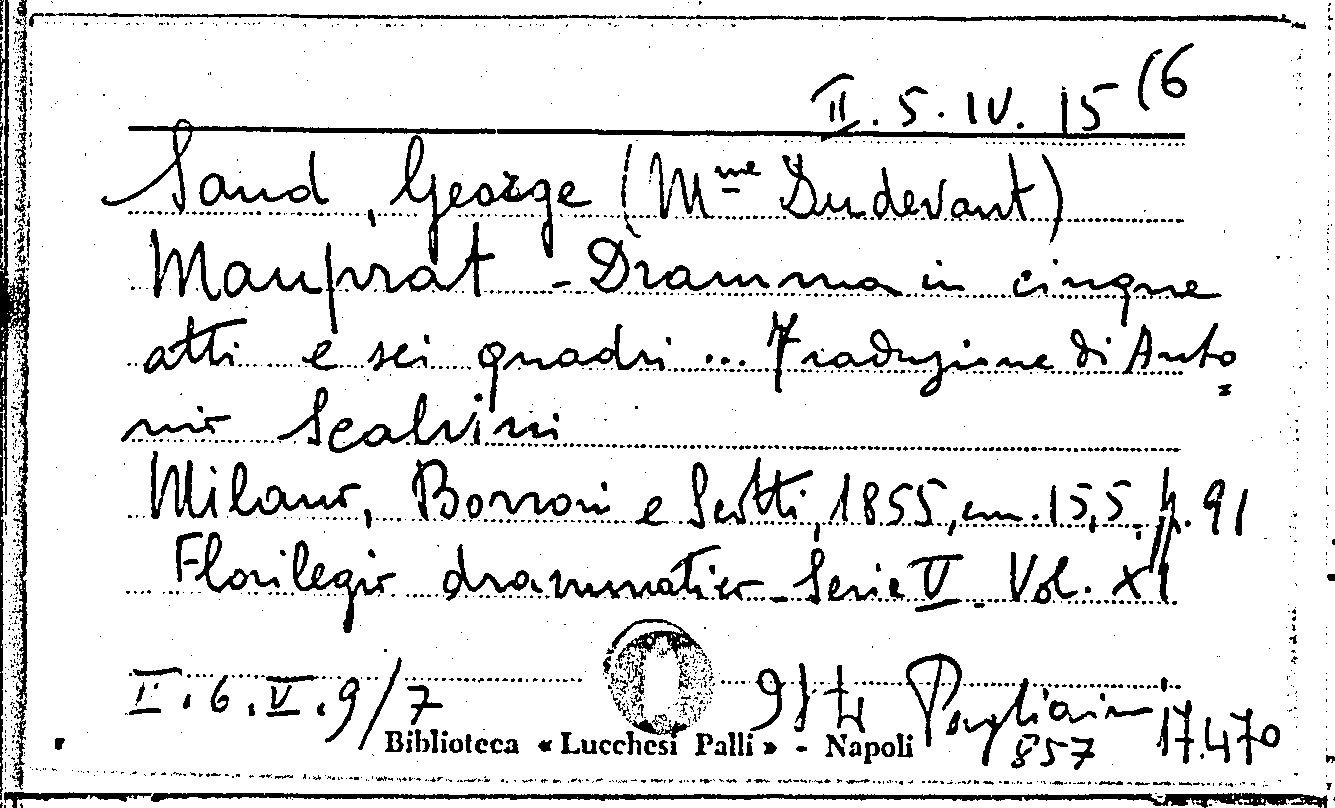 II. 5. IV. 15 (6
Sand, George (Mme Dudevant)
Mauprat - Dramma in cinque
atti e sei quadri ... Traduzione di Anto
nio Scalvini
Milano, Borroni e Scotti, 1855, cm. 15,5. p. 91
Florilegio drammatico - Serie V. Vol. XI
I. 6. V. 9/7
Pagliaini 17.470
857
Biblioteca « Lucchesi Palli » - Napoli